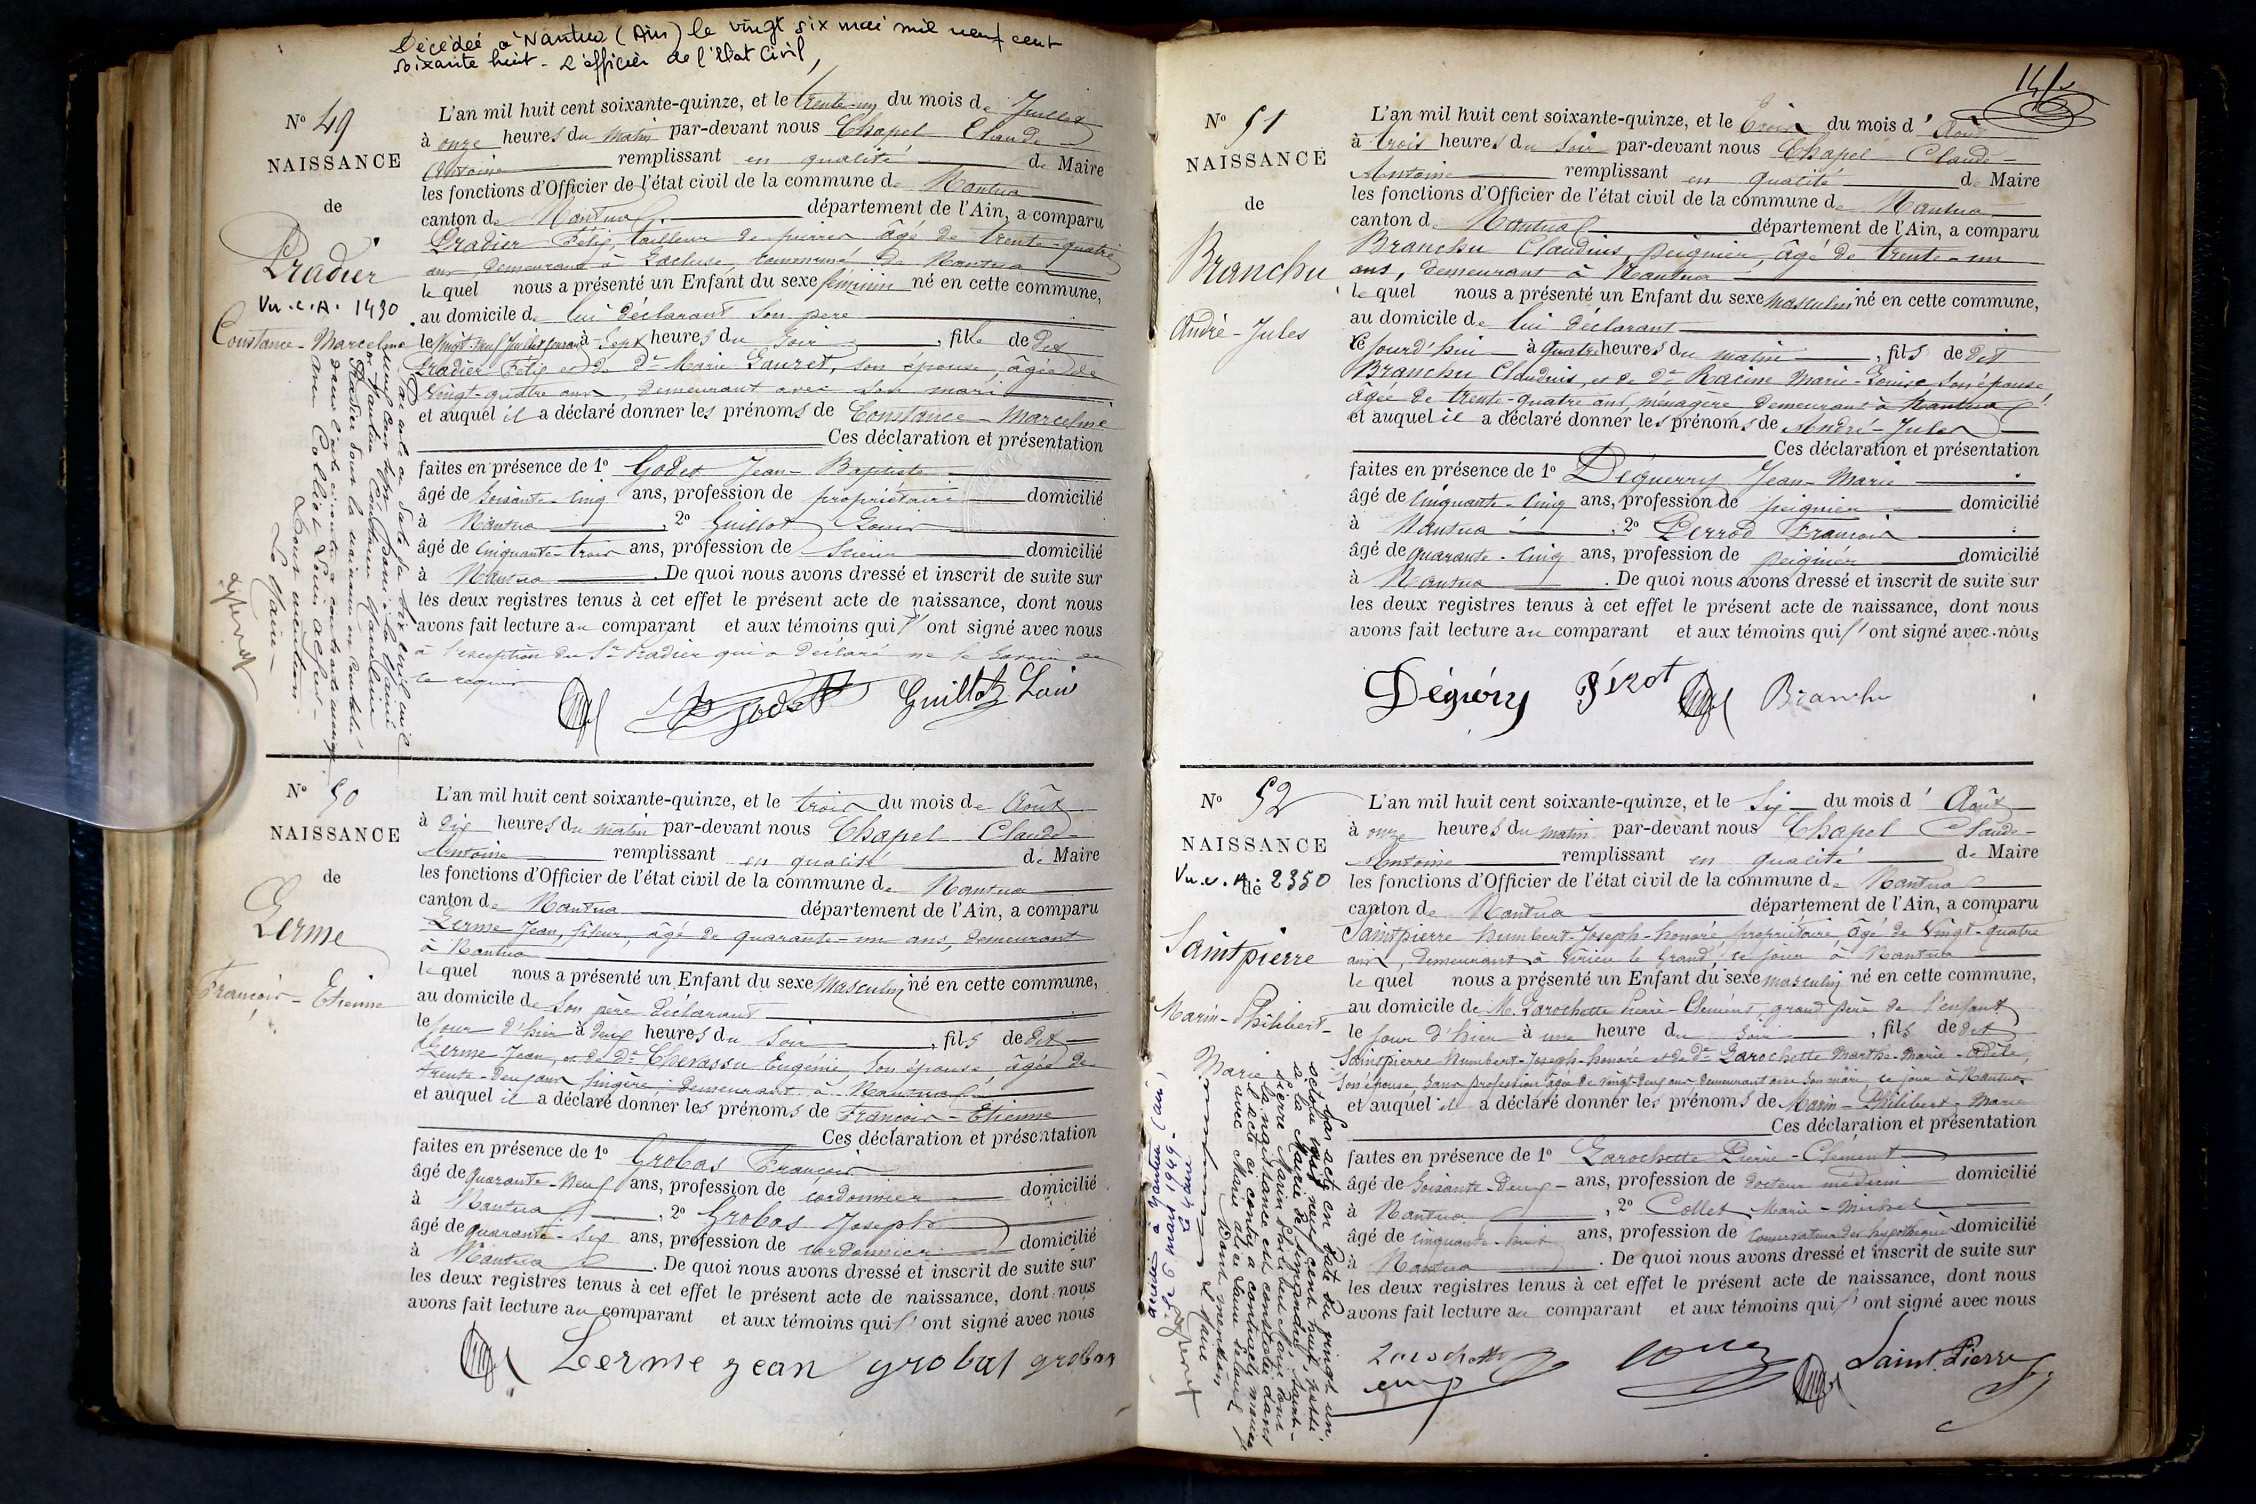 Décédée à Nantua (Ain) le vingt six mai mil neuf cent
soixante huit - L'officier de l'Etat Civil,
N° 49
NAISSANCE
de
Pradier
Vu. e. A. 1490
Constance - Marceline
L'an mil huit cent soixante-quinze, et le trente-un du mois de Juillet
à onze heures du matin par-devant nous Chapel Claude-
Antoine remplissant en qualité de Maire
les fonctions d'Officier de l'état civil de la commune de Nantua
canton de Nantua département de l'Ain, a comparu
Pradier Félix, tailleur de pierres âgé de trente-quatre
ans, demeurant à Lacluse, commune de Nantua
le quel nous a présenté un Enfant du sexe féminin né en cette commune,
au domicile de lui déclarant son père
le vingt-neuf Juillet courant à Sept heures du Soir, fille de dit
Pradier Félix et de De Marie Gauret, son épouse, âgée de
vingt-quatre ans, demeurant avec son mari
et auquel il a déclaré donner les prénoms de Constance - Marceline
Ces déclaration et présentation
faites en présence de 1° Godet Jean-Baptiste
âgé de soixante-cinq ans, profession de propriétaire domicilié
à Nantua, 2° Guillot Louis
âgé de cinquante-trois ans, profession de domicilié
à Nantua. De quoi nous avons dressé et inscrit de suite sur
les deux registres tenus à cet effet le présent acte de naissance, dont nous
avons fait lecture au comparant et aux témoins qui l'ont signé avec nous
à l'exception du Sr Pradier qui a déclaré ne le savoir de
ce requis
Godet Guillot Louis
N° 50
NAISSANCE
de
Lerme
François - Etienne
L'an mil huit cent soixante-quinze, et le trois du mois de Août
à dix heures du matin par-devant nous Chapel Claude-
Antoine remplissant en qualité de Maire
les fonctions d'Officier de l'état civil de la commune de Nantua
canton de Nantua département de l'Ain, a comparu
Lerme Jean, âgé de quarante-un ans, demeurant
à Nantua
le quel nous a présenté un Enfant du sexe Masculin né en cette commune,
au domicile de son père déclarant
le jour d'hier à deux heures du Soir, fils de dit
Lerme Jean, et de De Chevassu Eugénie, son épouse âgée de
trente-deux ans, lingère, demeurant à Nantua
et auquel il a déclaré donner les prénoms de François - Etienne
Ces déclaration et présentation
faites en présence de 1° Grobas François
âgé de quarante-neuf ans, profession de cordonnier domicilié
à Nantua, 2° Grobas Joseph
âgé de quarante-six ans, profession de cordonnier domicilié
à Nantua. De quoi nous avons dressé et inscrit de suite sur
les deux registres tenus à cet effet le présent acte de naissance, dont nous
avons fait lecture au comparant et aux témoins qui l'ont signé avec nous
Lerme jean grobas grobas
N° 51
NAISSANCE
de
Branchu
André - Jules
L'an mil huit cent soixante-quinze, et le Trois du mois d'Août
à trois heures du Soir par-devant nous Chapel Claude-
Antoine remplissant en qualité de Maire
les fonctions d'Officier de l'état civil de la commune de Nantua
canton de Nantua département de l'Ain, a comparu
Branchu Claudius, peignier, âgé de trente-un
ans, demeurant à Nantua
le quel nous a présenté un Enfant du sexe masculin né en cette commune,
au domicile de lui déclarant
ce jourd'hui à quatre heures du matin, fils de dit
Branchu Claudius, et de De Racine Marie-Louise son épouse
âgée de trente-quatre ans, ménagère demeurant à Nantua
et auquel il a déclaré donner les prénoms de André-Jules
Ces déclaration et présentation
faites en présence de 1° Déguerry Jean-Marie
âgé de cinquante-cinq ans, profession de peignier domicilié
à Nantua, 2° Perrod François
âgé de quarante-cinq ans, profession de peignier domicilié
à Nantua. De quoi nous avons dressé et inscrit de suite sur
les deux registres tenus à cet effet le présent acte de naissance, dont nous
avons fait lecture au comparant et aux témoins qui l'ont signé avec nous
Branchu
N° 52
NAISSANCE
Vu. e. A. 2350
de
Saintpierre
Marin - Philibert-
Marie
L'an mil huit cent soixante-quinze, et le Six du mois d'Août
à onze heures du matin par-devant nous Chapel Claude-
Antoine remplissant en qualité de Maire
les fonctions d'Officier de l'état civil de la commune de Nantua
canton de Nantua département de l'Ain, a comparu
Saintpierre humbert-Joseph-honoré, propriétaire, âgé de vingt-quatre
ans, demeurant à Virieu le Grand, ce jour à Nantua
le quel nous a présenté un Enfant du sexe masculin né en cette commune,
au domicile de M. Larochette Pierre-Clément, grand père de l'enfant
le jour d'hier à une heure du Soir, fils de dit
Saintpierre humbert-Joseph-honoré et de De Larochette Marthe-Marie-Adèle,
son épouse, sans profession âgée de vingt-deux ans demeurant avec son mari, ce jour à Nantua
et auquel il a déclaré donner les prénoms de Marin - Philibert - Marie
Ces déclaration et présentation
faites en présence de 1° Larochette Pierre-Clément
âgé de soixante-deux ans, profession de docteur médecin domicilié
à Nantua, 2° Collet Marie-Michel
âgé de cinquante-huit ans, profession de Conservateur des hypothèques domicilié
à Nantua. De quoi nous avons dressé et inscrit de suite sur
les deux registres tenus à cet effet le présent acte de naissance, dont nous
avons fait lecture au comparant et aux témoins qui l'ont signé avec nous
Larochette Saint Pierre
Décédé à Nantua (Ain)
le 6 mars 1949-
Le Maire